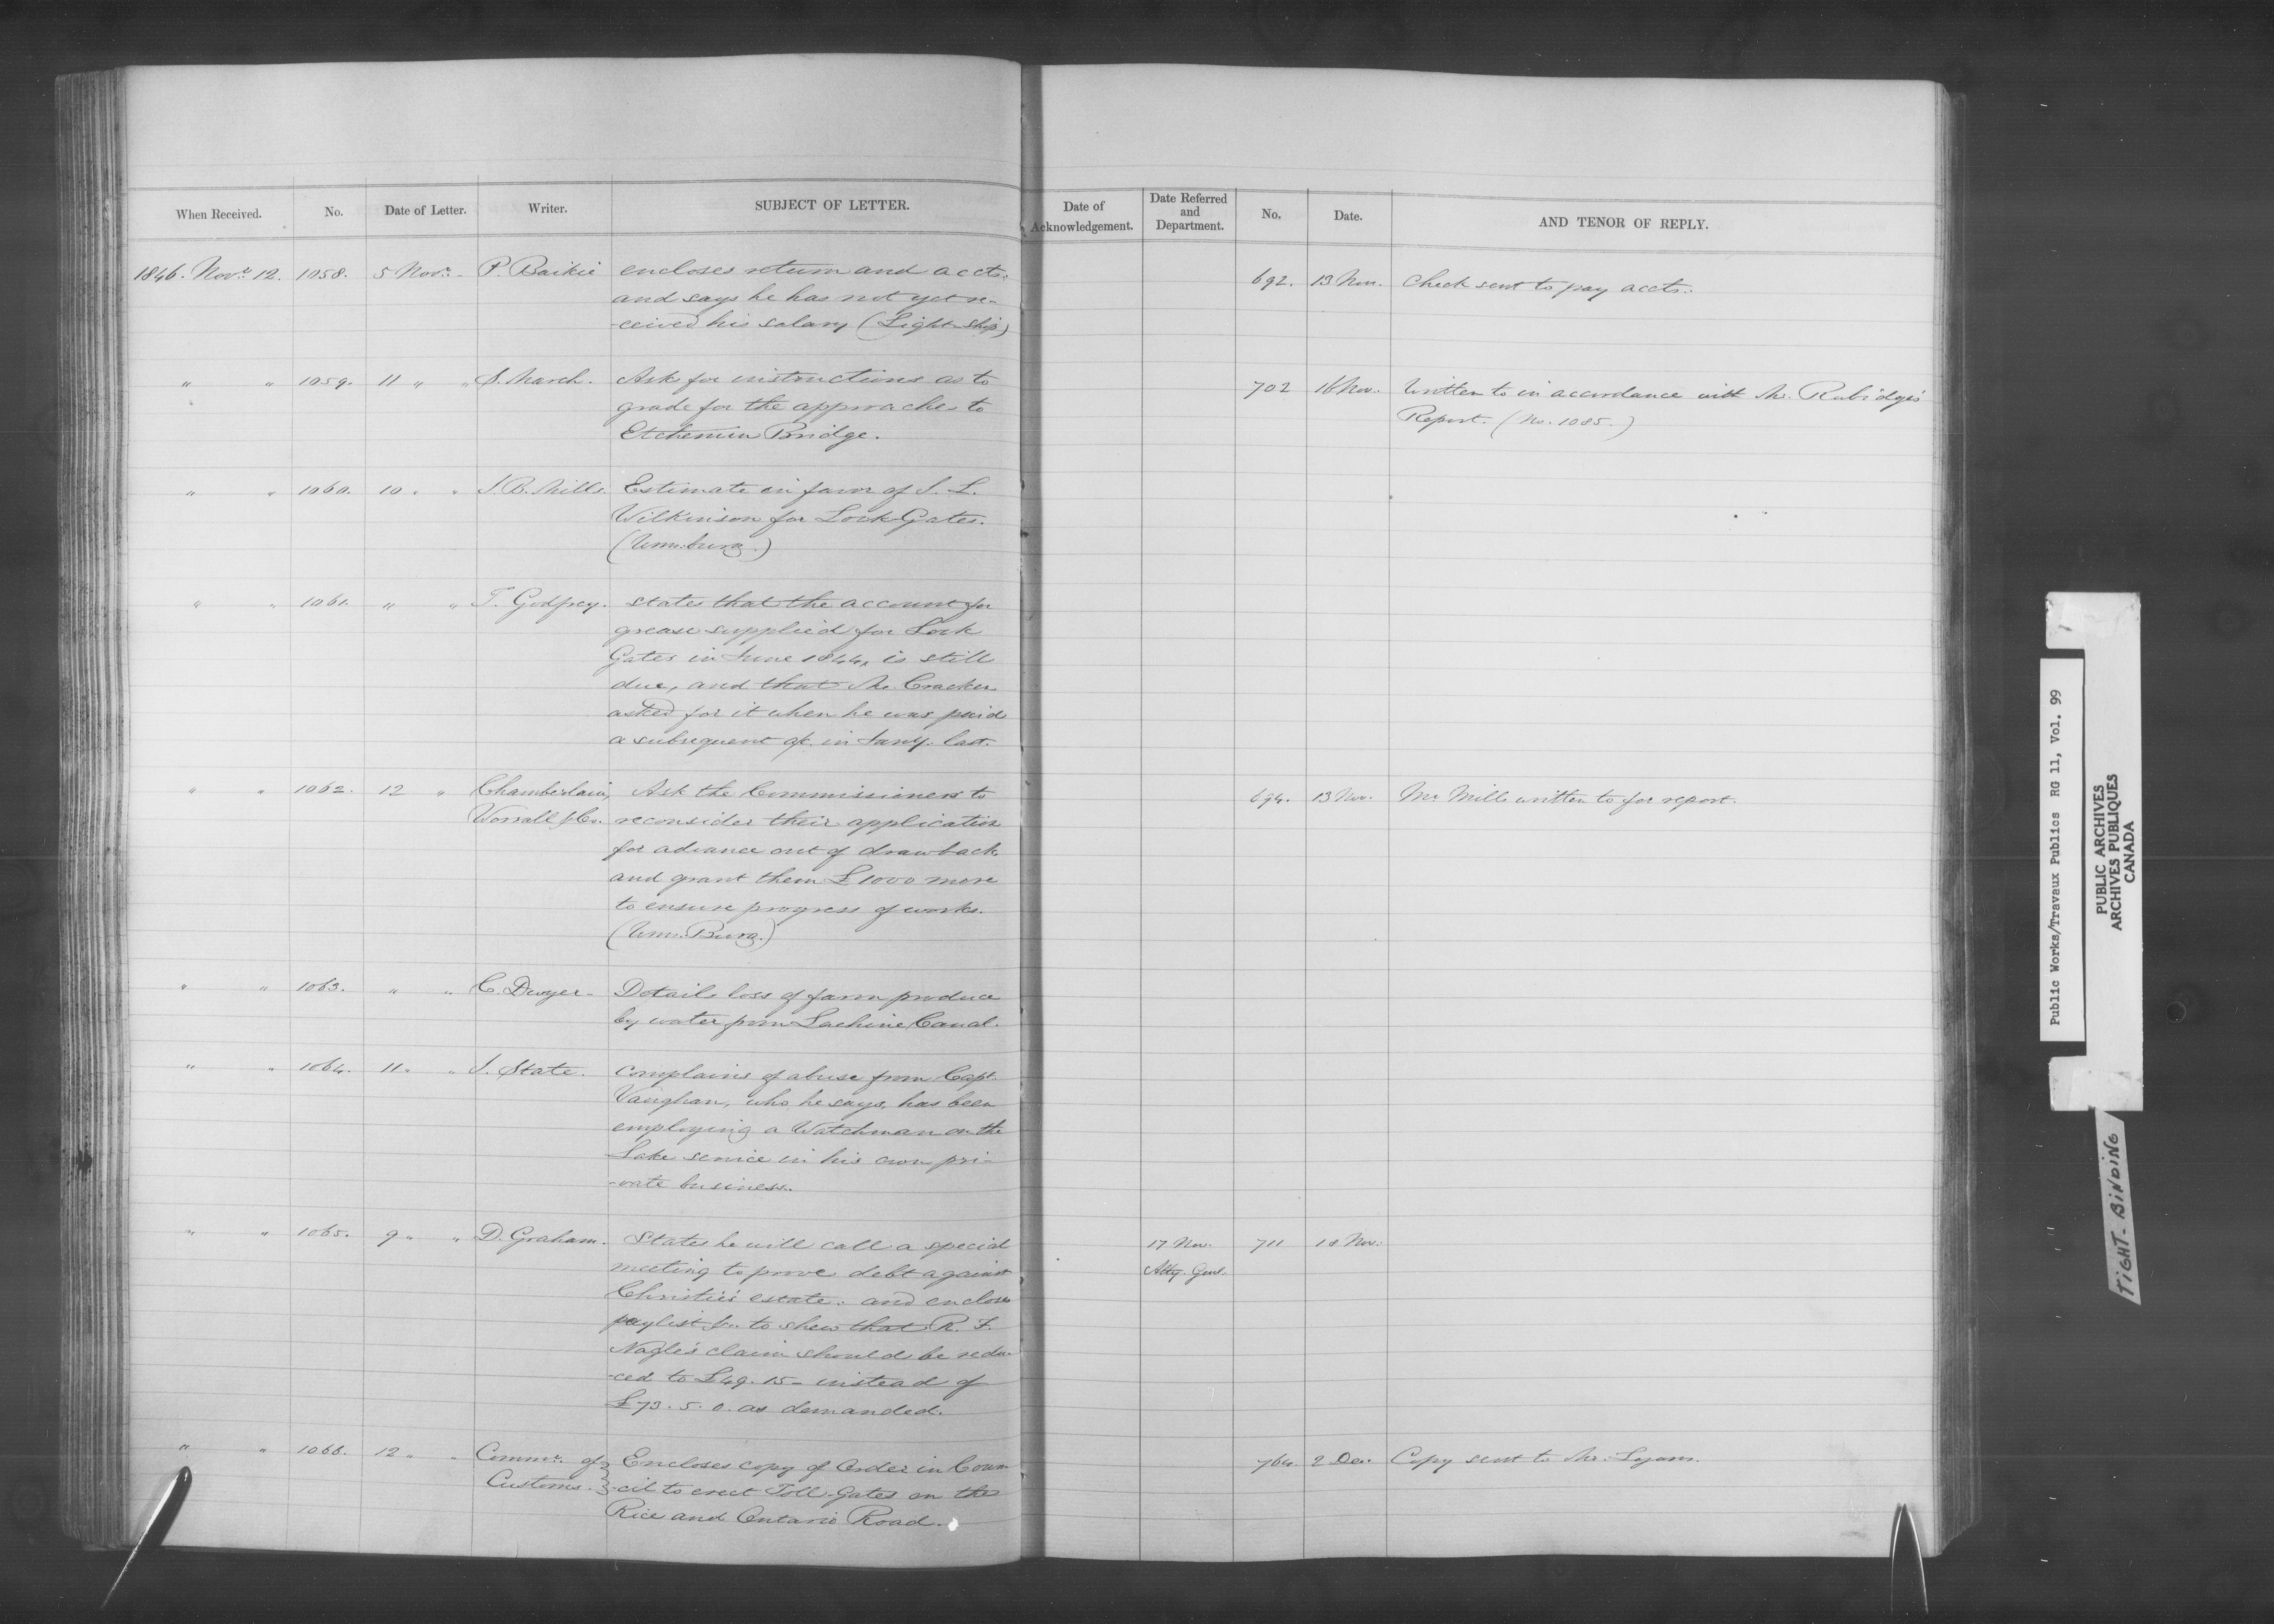 When Received. No. Date of Letter. Writer. SUBJECT OF LETTER.
1846. Novr. 12. 1058. 5 Novr. P. Baikie encloses return and accts:
and says he has not yet re-
-ceived his salary (Light-Ship)
" " 1059. 11 " " S. March. Asks for instructions as to
grade for the approaches to
Etchemin Bridge.
" " 1060. 10 " " J. B. Mills. Estimate in favor of J. L.
Wilkinson for Lock Gates.
(Wmsburg.)
" " 1061. " " T. Godfrey. states that the account for
grease supplied for Lock
Gates in June 1844, is still
due, and that Mr. Cracker
asked for it when he was paid
a subsequent a/c. in Jany. last.
" " 1062. 12 " Chamberlain, Ask the Commissioners to
Worrall & Co. reconsider their application
for advance out of drawback
and grant them £1000 more
to ensure progress of works.
(Wm. Burg.)
" " 1063. " " C. Dwyer - Details loss of farm produce
by water from Lachine Canal.
" " 1064. 11 " " J. State. complains of abuse from Capt.
Vaughan, who he says, has been
employing a Watchman on the
Lake service in his own pri-
-vate business.
" " 1065. 9 " " D. Graham. States he will call a special
meeting to prove debt against
Christie's estate: and encloses
paylist &c. to shew that R. F.
Nagle's claim should be redu-
-ced to £49. 15 - instead of
£73. 5. 0. as demanded.
" " 1066. 12 " " Commr. of Encloses copy of Order in Coun
Customs. -cil to erect Toll-Gates on the
Rice and Ontario Road.
Date of Acknowledgement. Date Referred and Department. No. Date. AND TENOR OF REPLY.
692. 13 Nov. Check sent to pay accts:
702 16 Nov. Written to in accordance with Mr. Rubidge's
Report. (No. 1085.)
694. 13 Nov. Mr. Mills written to for report.
17 Nov. 711 18 Nov:
Atty. Genl.
764. 2 Dec. Copy sent to Mr. Lyons.
Public Works/Travaux Publics RG 11, Vol. 99
PUBLIC ARCHIVES
ARCHIVES PUBLIQUES
CANADA
TIGHT-BINDING